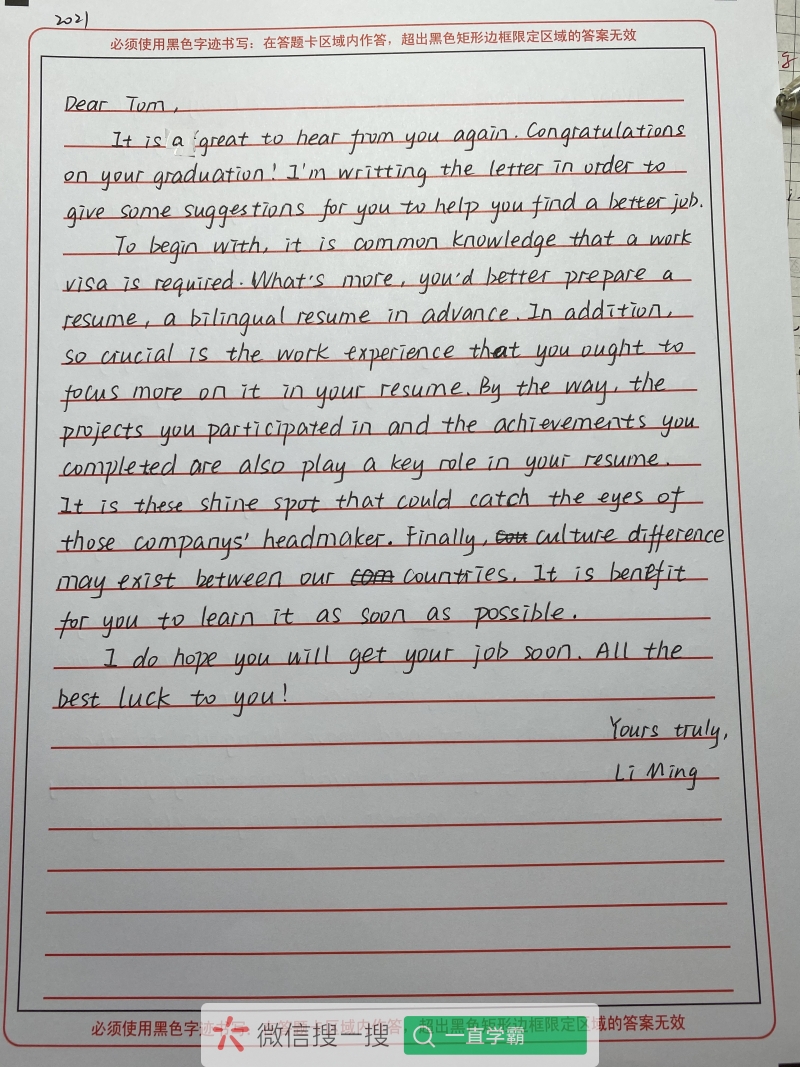 2021
必须使用黑色字迹书写：在答题卡区域内作答，超出黑色矩形边框限定区域的答案无效
Dear Tom,
It is a great to hear from you again. Congratulations
on your graduation! I'm writting the letter in order to
give some suggestions for you to help you find a better job.
To begin with, it is common knowledge that a work
visa is required. What's more, you'd better prepare a
resume, a bilingual resume in advance. In addition,
so crucial is the work experience that you ought to
focus more on it in your resume. By the way, the
projects you participated in and the achievements you
completed are also play a key role in your resume.
It is these shine spot that could catch the eyes of
those companys' headmaker. Finally, culture difference
may exist between our com countries. It is benefit
for you to learn it as soon as possible.
I do hope you will get your job soon. All the
best luck to you!
Yours truly,
Li Ming
必须使用黑色字迹书写：在答题卡区域内作答，超出黑色矩形边框限定区域的答案无效
微信搜一搜
一直学霸